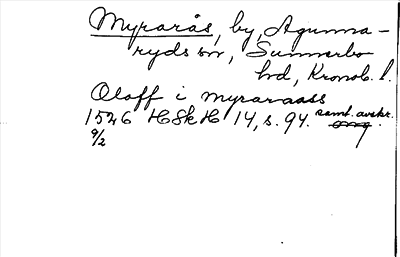 Myrarås, by, Agunna-
ryds sn, Sunnerbo
hd, Kronob. l.
Oloff i myraraass
1526 HSkH 14, s. 94. samt. avskr.
9/2